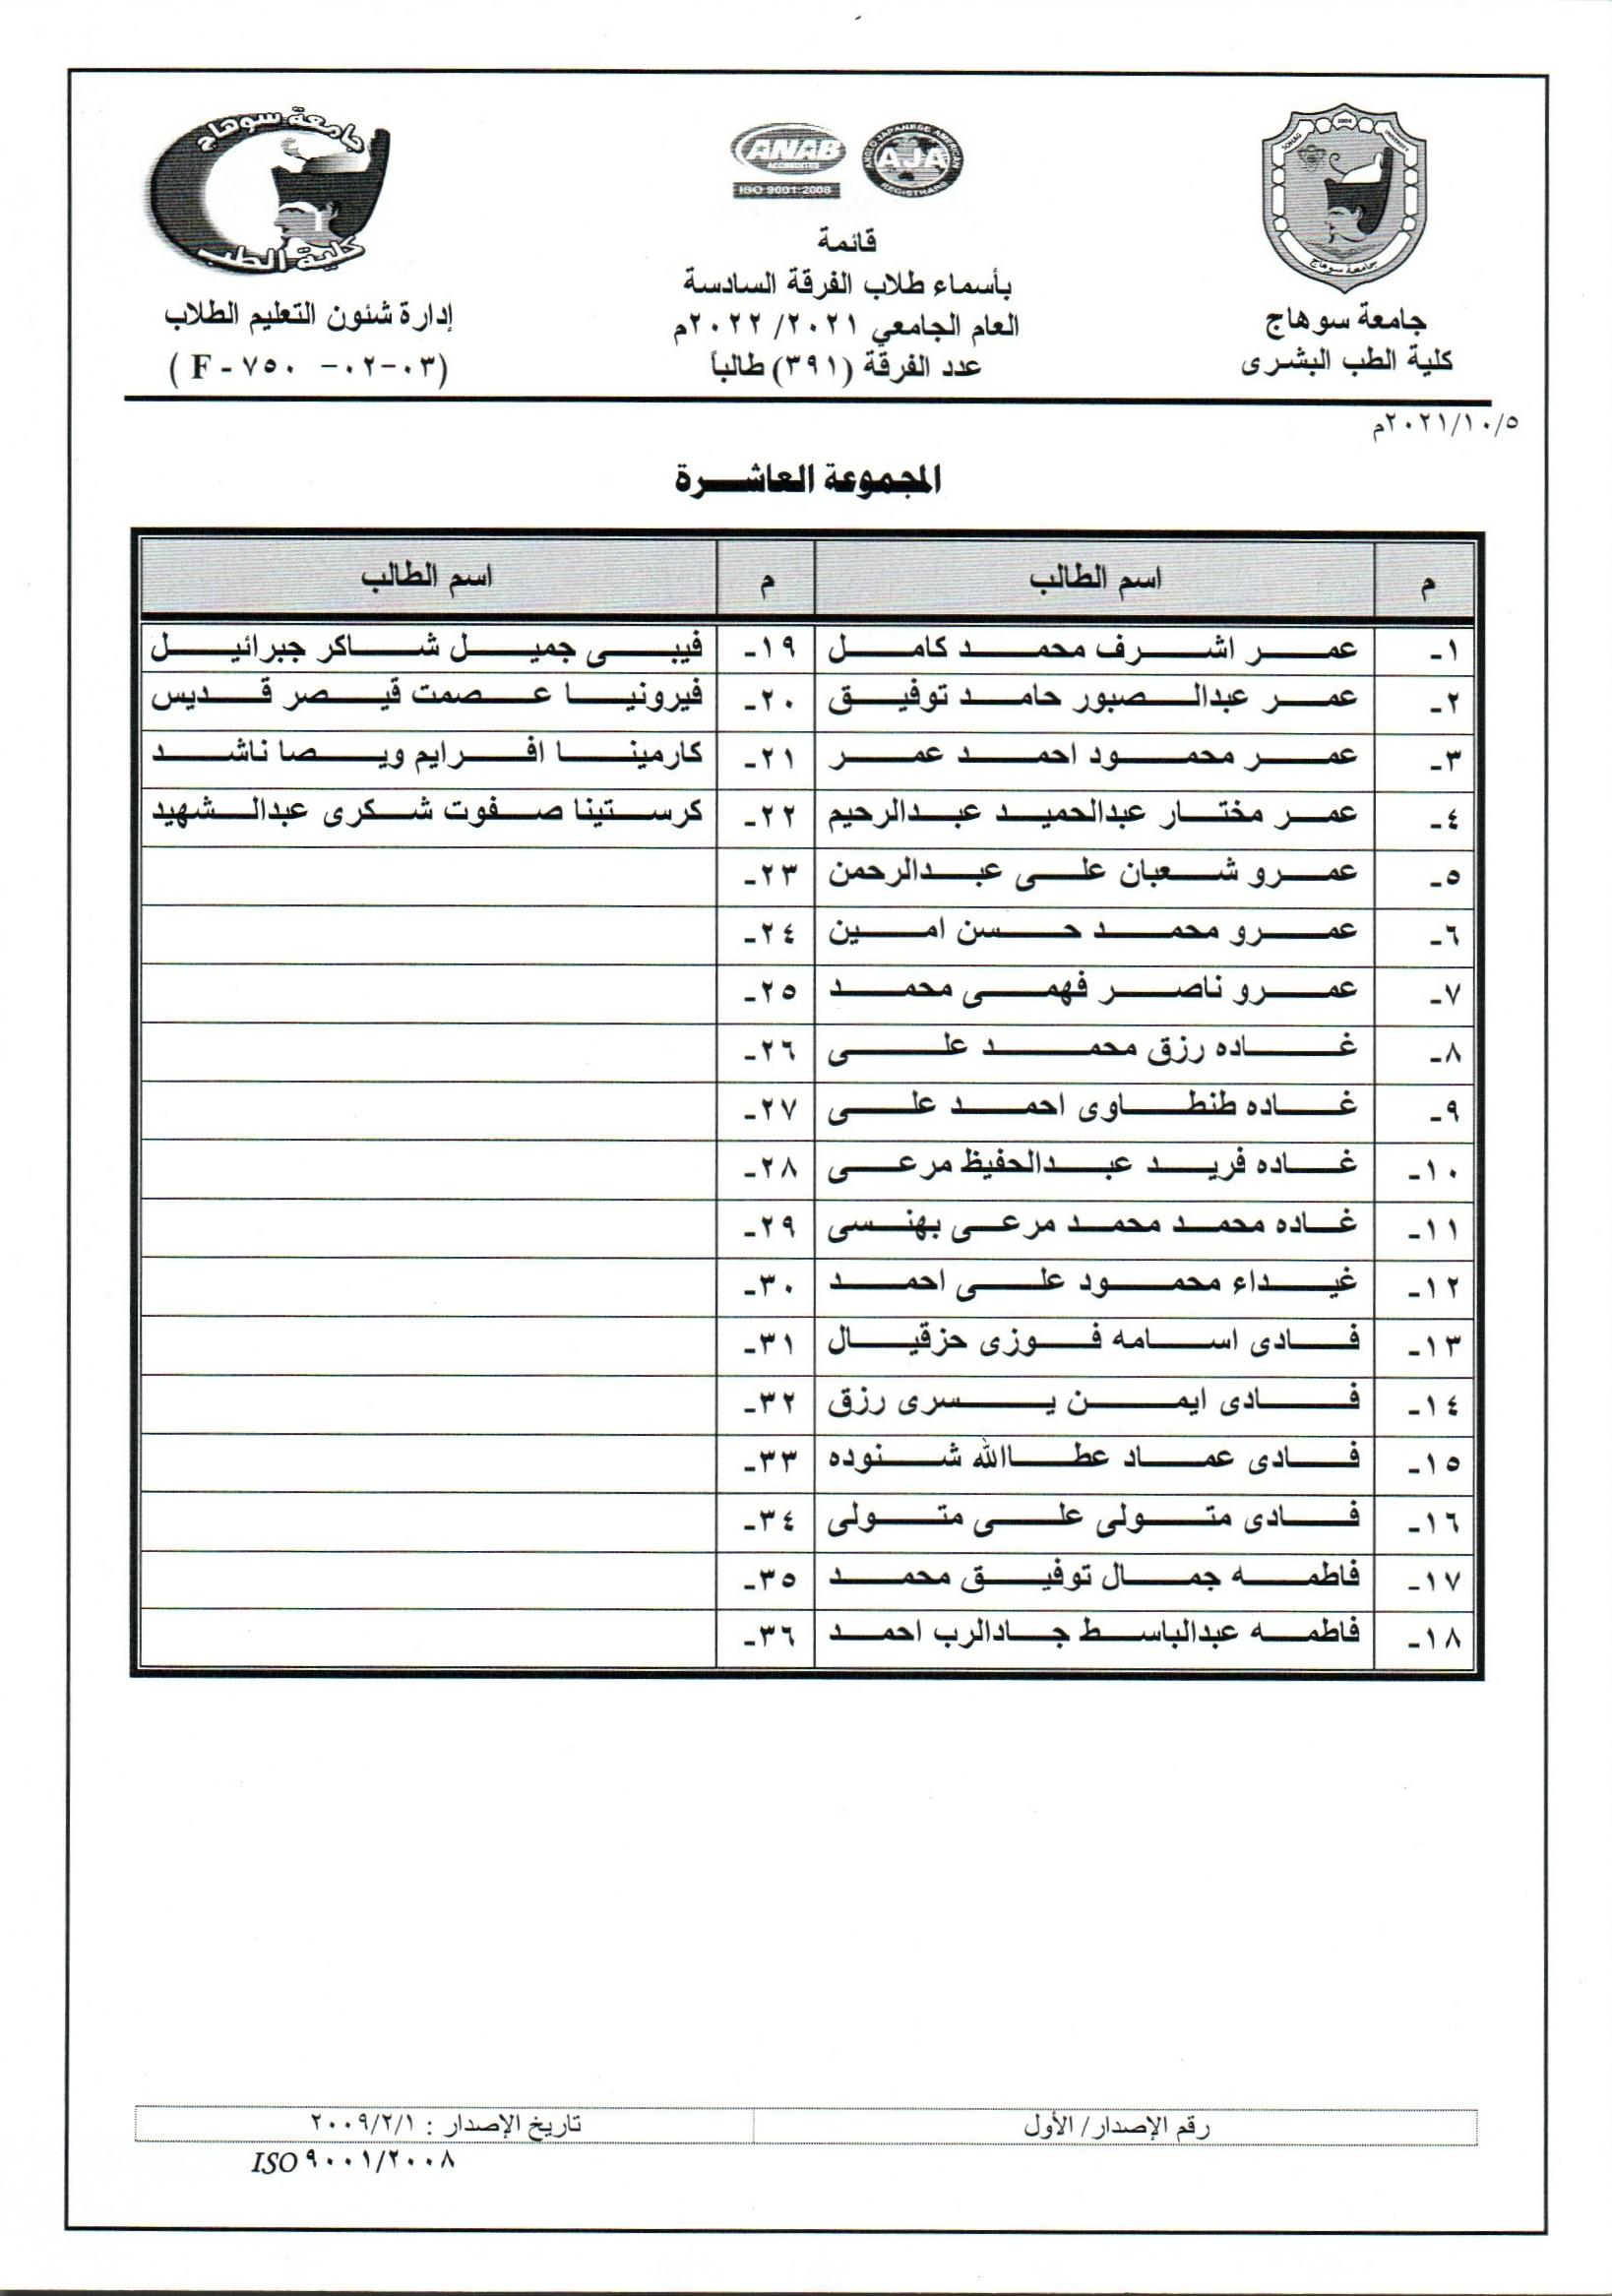 جامعة سوهاج
كلية الطب البشرى
SOHAG UNIVERSITY
2006
جامعة سوهاج
ANAB
ACCREDITED
ISO 9001:2008
ANGLO JAPANESE AMERICAN
AJA
REGISTRARS
قائمة
بأسماء طلاب الفرقة السادسة
العام الجامعي ٢٠٢١/ ٢٠٢٢م
عدد الفرقة (٣٩١) طالباً
جامعة سوهاج
كلية الطب
إدارة شئون التعليم الطلاب
(F - ٧٥٠ -٠٢-٠٣)
٢٠٢١/١٠/٥م
المجموعة العاشرة
م اسم الطالب م اسم الطالب
١- عمر اشرف محمد كامل ١٩- فيبى جميل شاكر جبرائيل
٢- عمر عبدالصبور حامد توفيق ٢٠- فيرونيا عصمت قيصر قديس
٣- عمر محمود احمد عمر ٢١- كارمينا افرايم ويصا ناشد
٤- عمر مختار عبدالحميد عبدالرحيم ٢٢- كرستينا صفوت شكرى عبدالشهيد
٥- عمرو شعبان على عبدالرحمن ٢٣-
٦- عمرو محمد حسن امين ٢٤-
٧- عمرو ناصر فهمى محمد ٢٥-
٨- غاده رزق محمد على ٢٦-
٩- غاده طنطاوى احمد على ٢٧-
١٠- غاده فريد عبدالحفيظ مرعى ٢٨-
١١- غاده محمد محمد مرعى بهنسى ٢٩-
١٢- غيداء محمود على احمد ٣٠-
١٣- فادى اسامه فوزى حزقيال ٣١-
١٤- فادى ايمن يسرى رزق ٣٢-
١٥- فادى عماد عطاالله شنوده ٣٣-
١٦- فادى متولى على متولى ٣٤-
١٧- فاطمه جمال توفيق محمد ٣٥-
١٨- فاطمه عبدالباسط جادالرب احمد ٣٦-
رقم الإصدار/ الأول تاريخ الإصدار : ٢٠٠٩/٢/١
ISO ٩٠٠١/٢٠٠٨